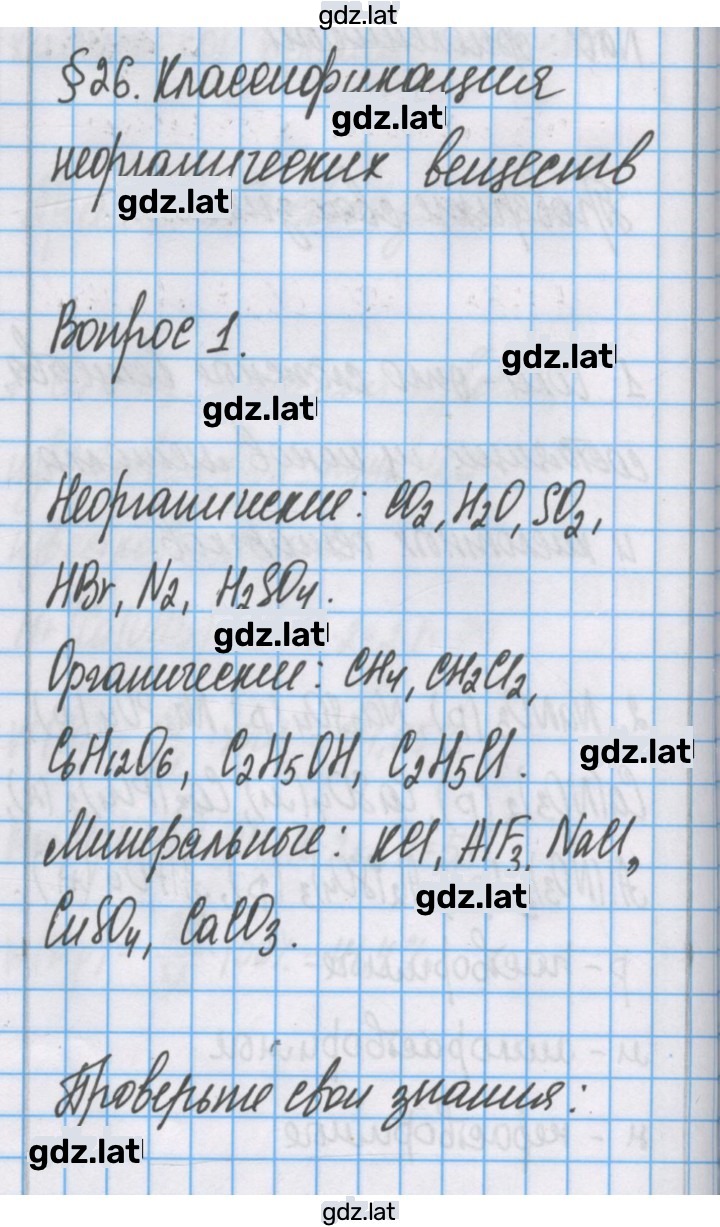 gdz.lat
§26. Классификация
gdz.lat
неорганических веществ
gdz.lat
Вопрос 1.
gdz.lat
gdz.lat
Неорганические: CO2, H2O, SO2,
HBr, N2, H2SO4.
gdz.lat
Органические: CH4, CH2Cl2,
C6H12O6, C2H5OH, C2H5Cl.
gdz.lat
Минеральные: KCl, AlF3, NaCl,
gdz.lat
CuSO4, CaCO3.
Проверьте свои знания:
gdz.lat
gdz.lat